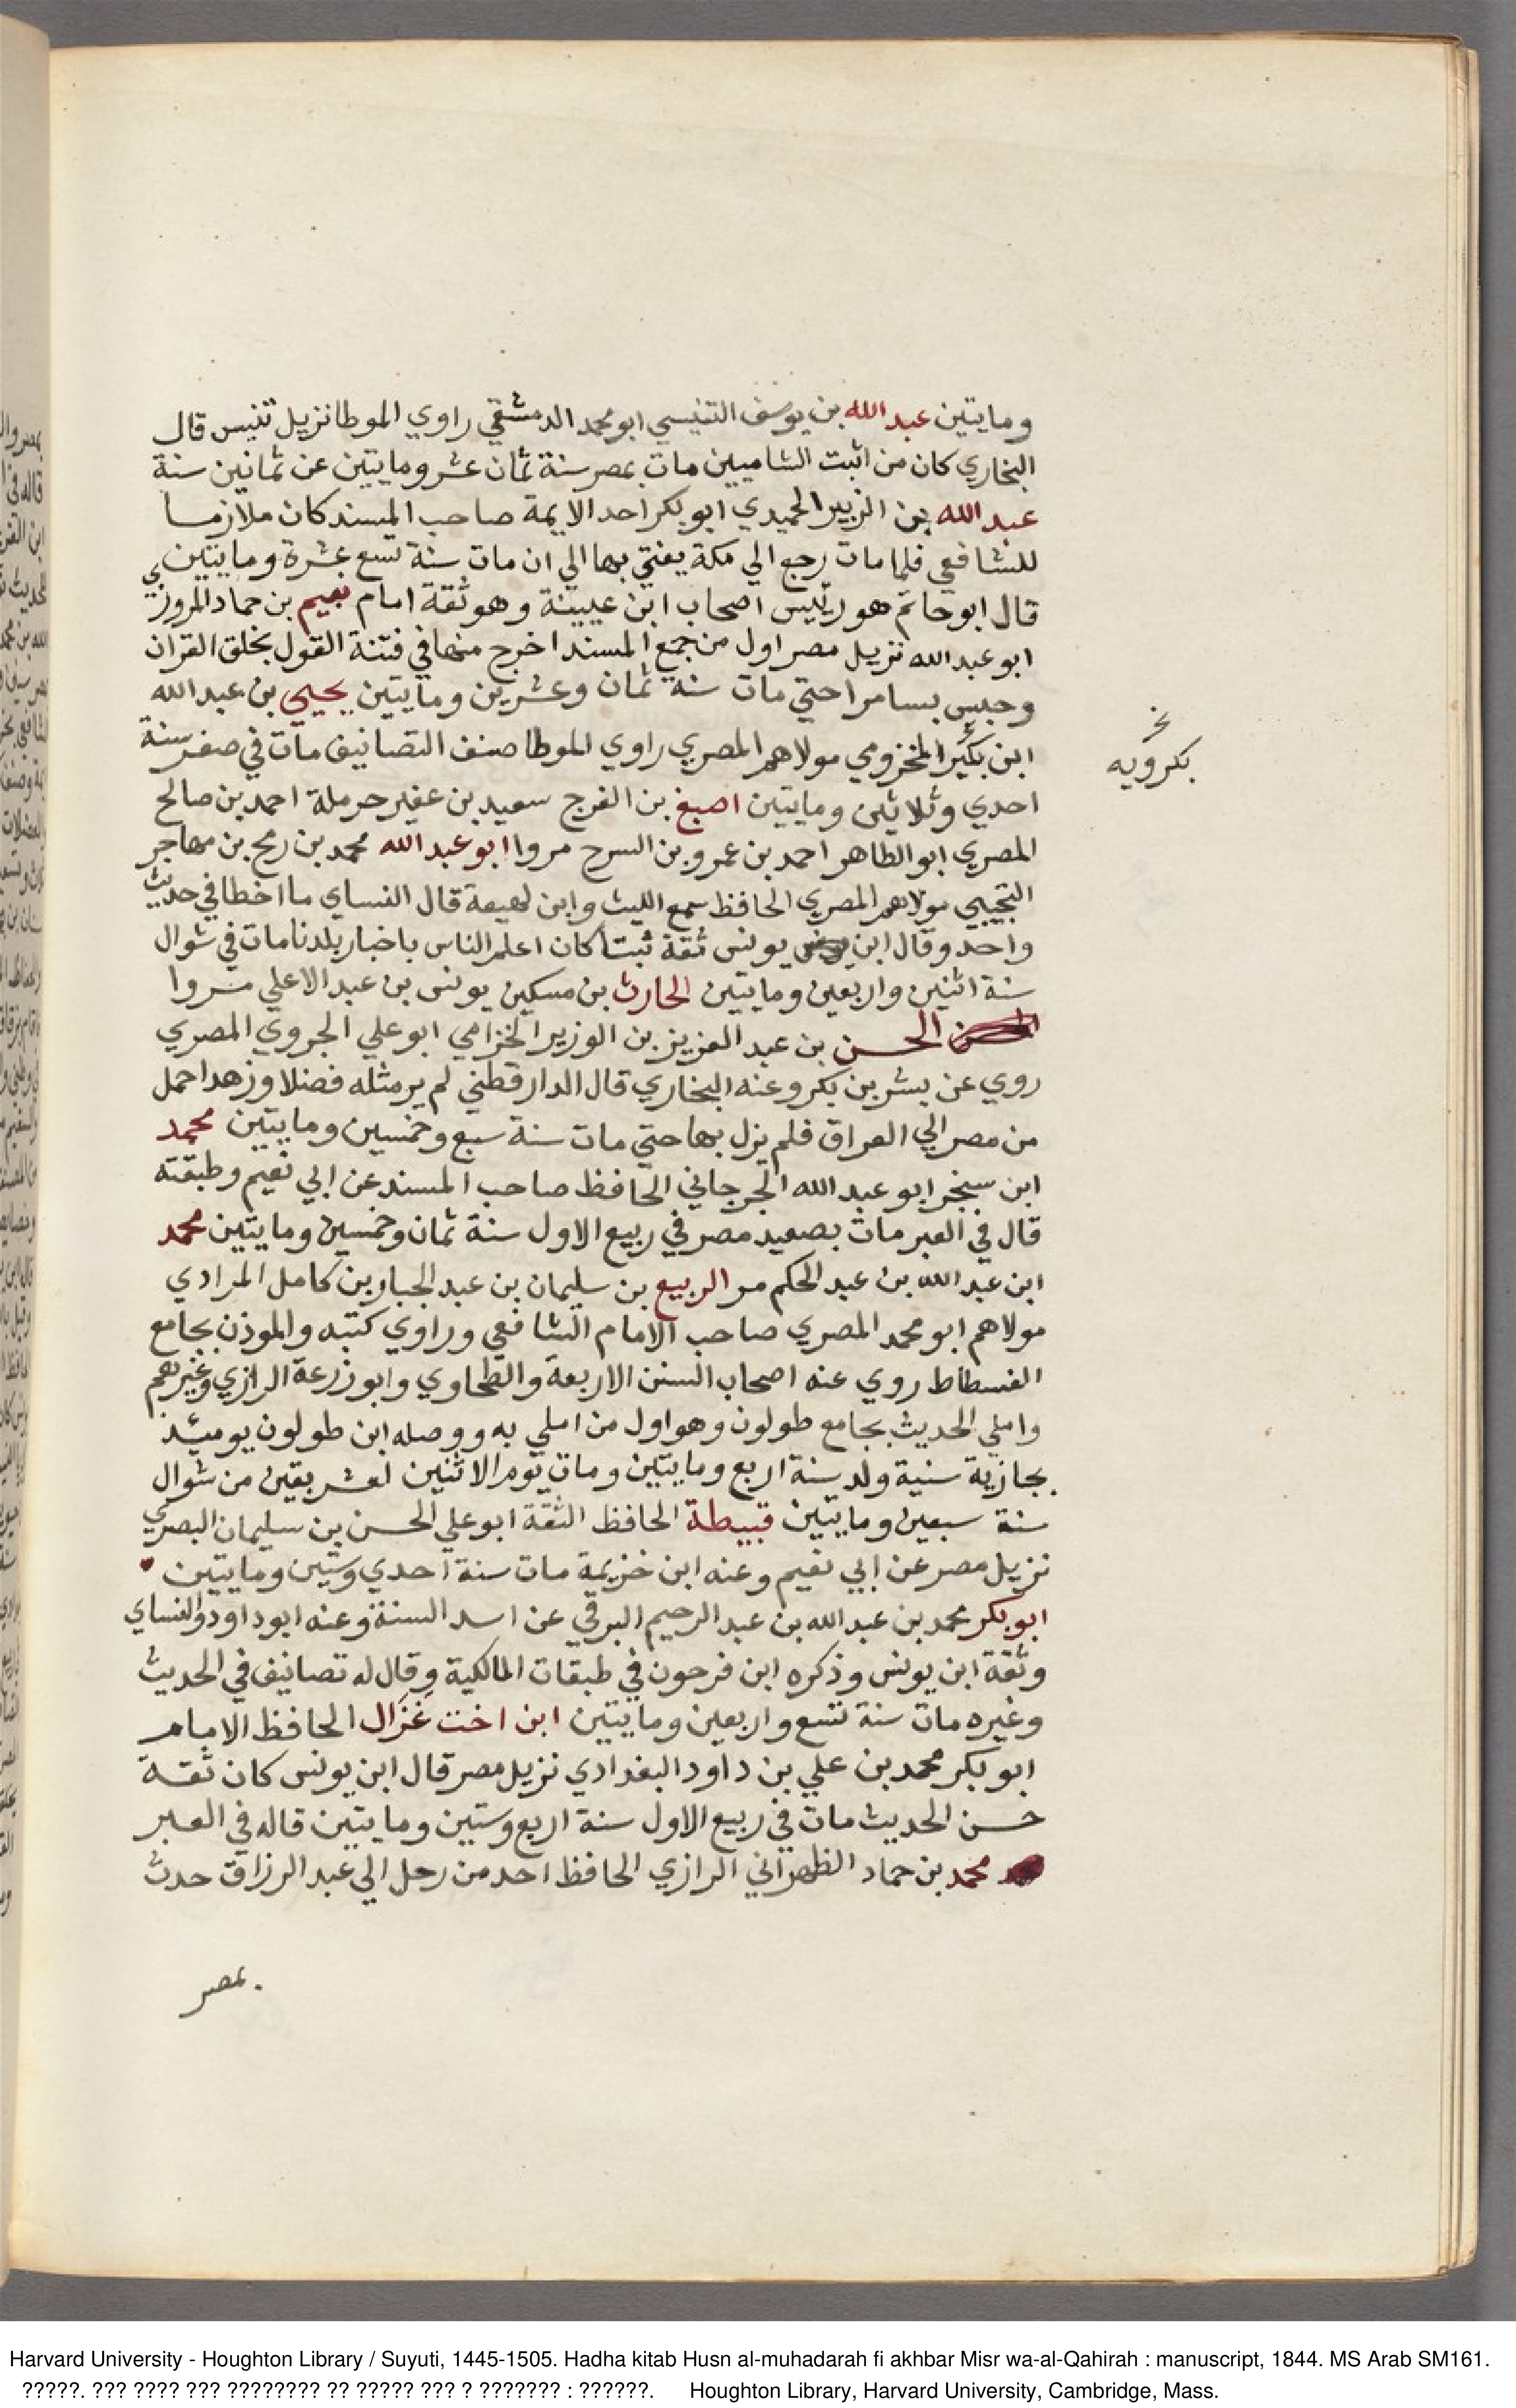 ومايتين عبد الله بن يوسف التنيسي ابو محمد الدمشقي راوي الموطا نزيل تنيس قال
البخاري كان من اثبت الشاميين مات بمصر سنة ثمان عشر ومايتين عن ثمانين سنة
عبد الله بن الزبير الحميدي ابو بكر احد الايمة صاحب المسند كان ملازما
للشافعي فلما مات رجع الي مكة يفتي بها الي ان مات سنة تسع عشرة ومايتين
قال ابو حاتم هو رئيس اصحاب ابن عيينة وهو ثقة امام نعيم بن حماد المروزي
ابو عبد الله نزيل مصر اول من جمع المسند اخرج منها في فتنة القول بخلق القران
وحبس بسامرا حتي مات سنة ثمان وعشرين ومايتين يحيي بن عبد الله
ابن بكير المخزومي مولاهم المصري راوي الموطا صنف التصانيف مات في صفر سنة
نخ
بكرويه
احدي وثلاثين ومايتين اصبغ بن الفرج سعيد بن عفير حرملة احمد بن صالح
المصري ابو الطاهر احمد بن عمرو بن السرح مروا ابو عبد الله محمد بن رمح بن مهاجر
التجيبي مولاهم المصري الحافظ سمع الليث وابن لهيعة قال النساي ما اخطا في حديث
واحد وقال ابن يونس ثقة ثبتا كان اعلم الناس باخبار بلدنا مات في شوال
سنة اثنين واربعين ومايتين الحارث بن مسكين يونس بن عبد الاعلي مروا
الحسن بن عبد العزيز بن الوزير الخزامي ابو علي الجروي المصري
روي عن بشر بن بكر وعنه البخاري قال الدارقطني لم ير مثله فضلا وزهدا حمل
من مصر الي العراق فلم يزل بها حتي مات سنة سبع وخمسين ومايتين محمد
ابن سنجر ابو عبد الله الجرجاني الحافظ صاحب المسند عن ابي نعيم وطبقته
قال في العبر مات بصعيد مصر في ربيع الاول سنة ثمان وخمسين ومايتين محمد
ابن عبد الله بن عبد الحكم مر الربيع بن سليمان بن عبد الجبار بن كامل المرادي
مولاهم ابو محمد المصري صاحب الامام الشافعي وراوي كتبه والموذن بجامع
الفسطاط روي عنه اصحاب السنن الاربعة والطحاوي وابو زرعة الرازي وغيرهم
واملي الحديث بجامع طولون وهو اول من املي به ووصله ابن طولون يوميذ
بجازية سنية ولد سنة اربع ومايتين ومات يوم الاثنين لعشر بقين من شوال
سنة سبعين ومايتين قبيطة الحافظ الثقة ابو علي الحسن بن سليمان البصري
نزيل مصر عن ابي نعيم وعنه ابن خزيمة مات سنة احدي وستين ومايتين
ابو بكر محمد بن عبد الله بن عبد الرحيم البرقي عن اسد السنة وعنه ابو داود والنساي
وثقة ابن يونس وذكره ابن فرحون في طبقات المالكية وقال له تصانيف في الحديث
وغيره مات سنة تسع واربعين ومايتين ابن اخت غزال الحافظ الامام
ابو بكر محمد بن علي بن داود البغدادي نزيل مصر قال ابن يونس كان ثقة
حسن الحديث مات في ربيع الاول سنة اربع وستين ومايتين قاله في العبر
محمد بن حماد الظهراني الرازي الحافظ احد من رحل الي عبد الرزاق حدث
بمصر
Harvard University - Houghton Library / Suyuti, 1445-1505. Hadha kitab Husn al-muhadarah fi akhbar Misr wa-al-Qahirah : manuscript, 1844. MS Arab SM161.
?????. ??? ???? ??? ???????? ?? ????? ??? ? ??????? : ??????. Houghton Library, Harvard University, Cambridge, Mass.